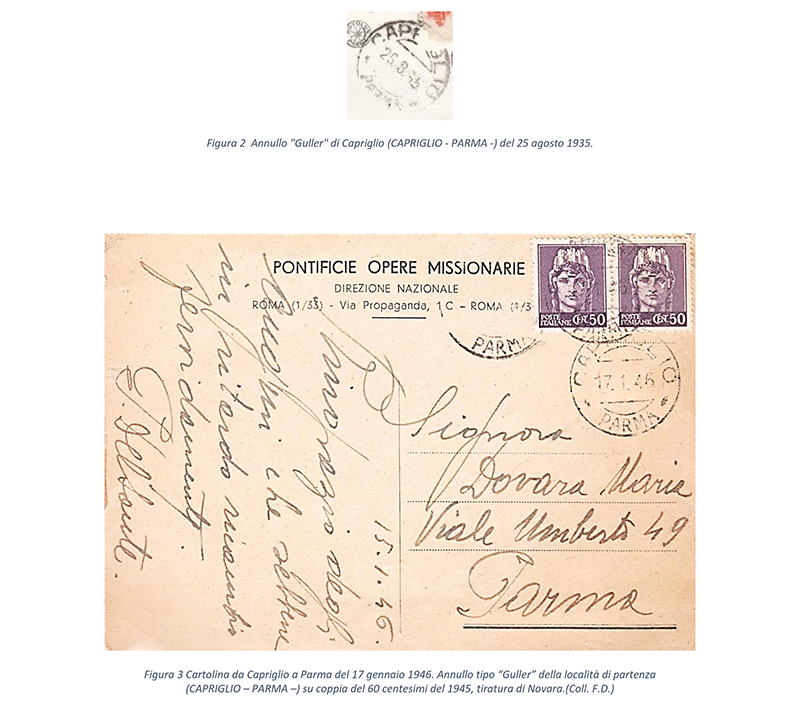 CAPR
LIO
25.8.35
PARMA
Figura 2 Annullo "Guller" di Capriglio (CAPRIGLIO - PARMA -) del 25 agosto 1935.
PONTIFICIE OPERE MISSIONARIE
DIREZIONE NAZIONALE
ROMA (1/33) - Via Propaganda, 1 C - ROMA (1/3
POSTE ITALIANE CENT 50
POSTE ITALIANE CENT 50
PARMA
CAP LIO
17.1.46
PARMA
15.1.46.
auguri che sebbene
in ritardo ricambio
G. Delsante.
Signora
Dovara Maria
Viale Umberto 49
Parma
Figura 3 Cartolina da Capriglio a Parma del 17 gennaio 1946. Annullo tipo “Guller” della località di partenza
(CAPRIGLIO – PARMA –) su coppia del 60 centesimi del 1945, tiratura di Novara.(Coll. F.D.)